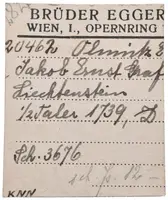 BRÜDER EGGER
WIEN, I., OPERNRING
20462 Olmütz E
Jakob Ernst Graf
Liechtenstein
1/2 Taler 1739,
Sch. 3676
KNN